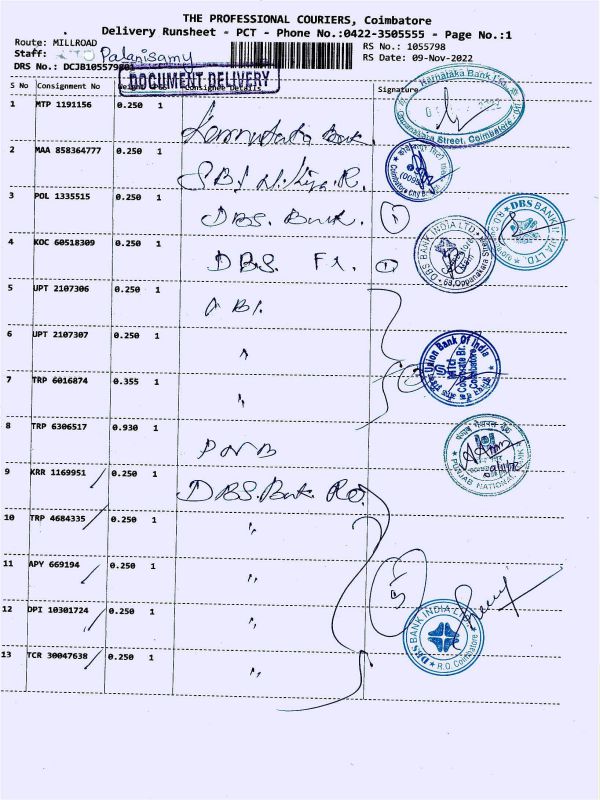 THE PROFESSIONAL COURIERS, Coimbatore
Delivery Runsheet - PCT - Phone No.:0422-3505555 - Page No.:1
Route: MILLROAD
RS No.: 1055798
Staff: Palanisamy
RS Date: 09-Nov-2022
DRS No.: DCJB105579801
DOCUMENT DELIVERY
S No Consignment No Weight Consignee Details Signature
1 MTP 1191156 0.250 1 Karnataka Bank
Karnataka Bank Ltd
Oppanakara Street, Coimbatore
2 MAA 858364777 0.250 1 SBI
3 POL 1335515 0.250 1 DBS. Bank. 1
DBS BANK INDIA LTD
4 KOC 60518309 0.250 1 DBS. 1
DBS BANK INDIA LTD
63, Oppanakara Street
5 UPT 2107306 0.250 1
6 UPT 2107307 0.250 1 "
Union Bank Of India
Corporate Br.
Coimbatore
7 TRP 6016874 0.355 1 "
8 TRP 6306517 0.930 1 PNB
पंजाब नैशनल बैंक
PUNJAB NATIONAL BANK
9 KRR 1169951 0.250 1 DBS. Bank Ro.
10 TRP 4684335 0.250 1 "
11 APY 669194 0.250 1 "
5
12 DPI 10301724 0.250 1 "
DBS BANK INDIA LTD
R.O. Coimbatore
13 TCR 30047638 0.250 1 "